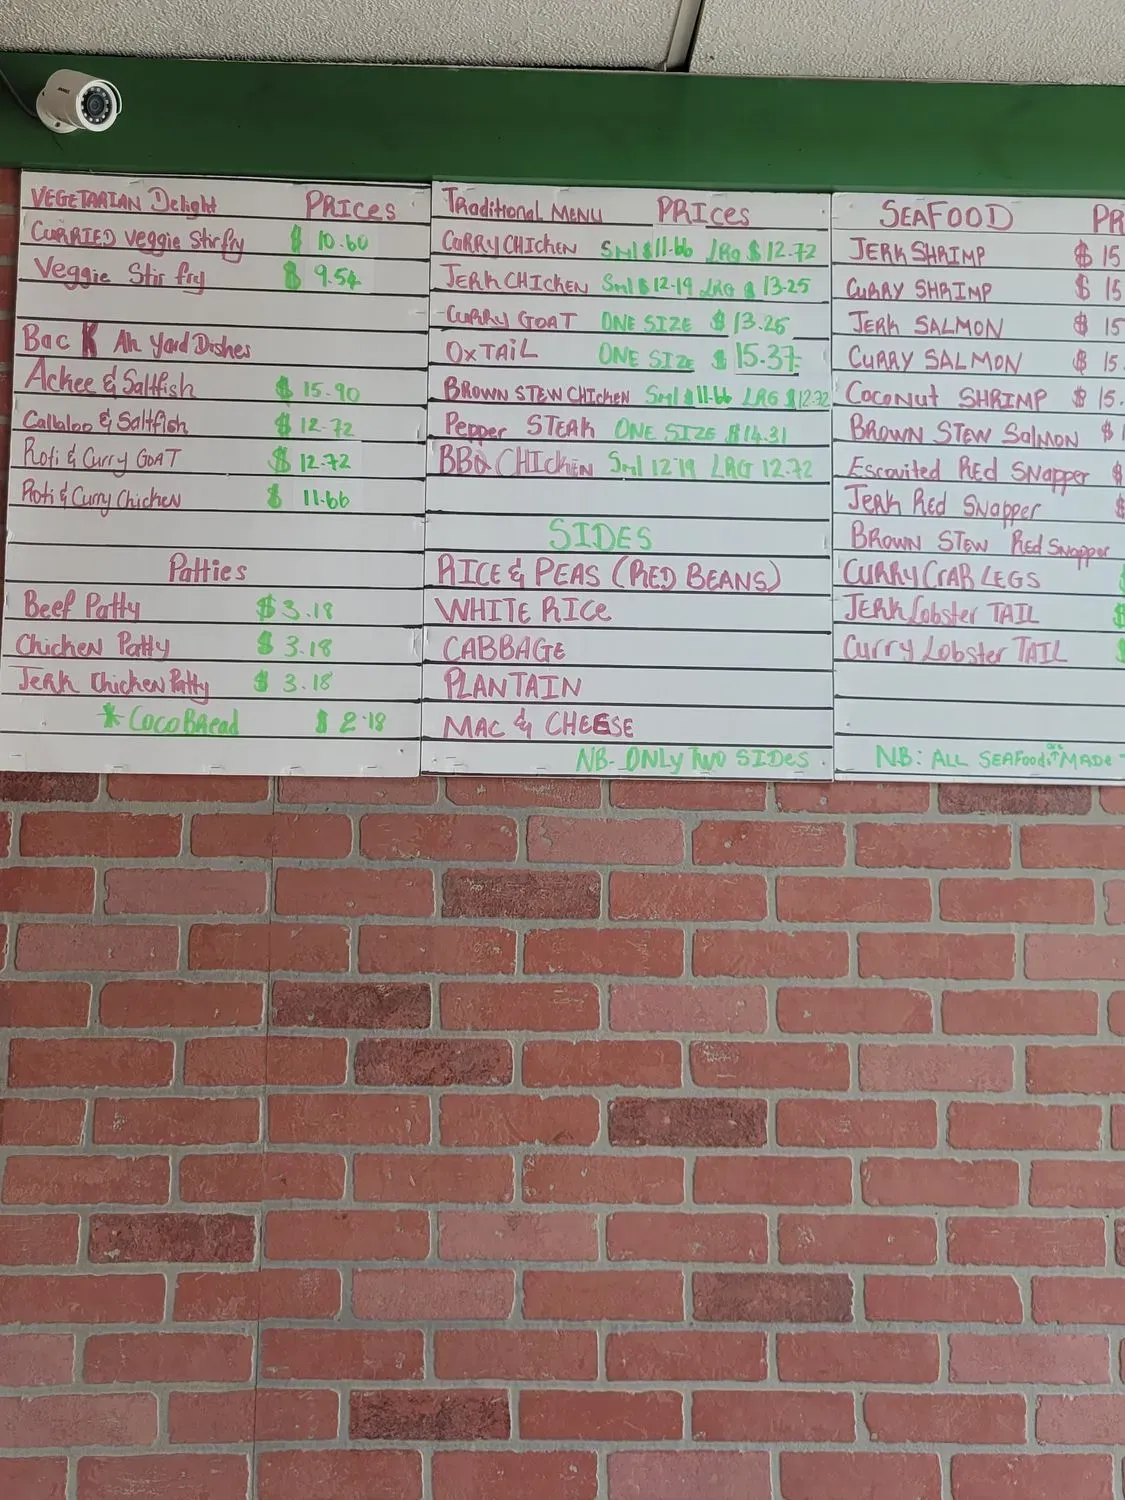 VEGETARIAN Delight PRICES
CURRIED Veggie Stirfry $ 10.60
Veggie Stir fry $ 9.54
Back Ah Yard Dishes
Ackee & Saltfish $ 15.90
Callaloo & Saltfish $ 12.72
Roti & Curry GOAT $ 12.72
Roti & Curry Chicken $ 11.66
Patties
Beef Patty $ 3.18
Chicken Patty $ 3.18
Jerk Chicken Patty $ 3.18
* Coco Bread $ 2.18
Traditional MENU PRICES
CURRY CHICKEN Sml $11.66 LRG $ 12.72
JERK CHICKEN Sml $ 12.19 LRG $ 13.25
CURRY GOAT ONE SIZE $ 13.25
OXTAIL ONE SIZE $ 15.37
BROWN STEW CHICKEN Sml $11.66 LRG $12.72
Pepper STEAK ONE SIZE $14.31
BBQ CHICKEN Sml 12.19 LRG 12.72
SIDES
RICE & PEAS (RED BEANS)
WHITE RICE
CABBAGE
PLANTAIN
MAC & CHEESE
NB- ONLY Two SIDES
SEAFOOD PR
JERK SHRIMP $ 15
CURRY SHRIMP $ 15
JERK SALMON $ 15
CURRY SALMON $ 15.
Coconut SHRIMP $ 15.
BROWN STEW SALMON $ 1
Escovited Red Snapper $
JERK Red Snapper $
BROWN STEW Red Snapper
CURRY CRAB LEGS $
JERK Lobster TAIL $
Curry Lobster TAIL $
NB: ALL SEAFood MADE